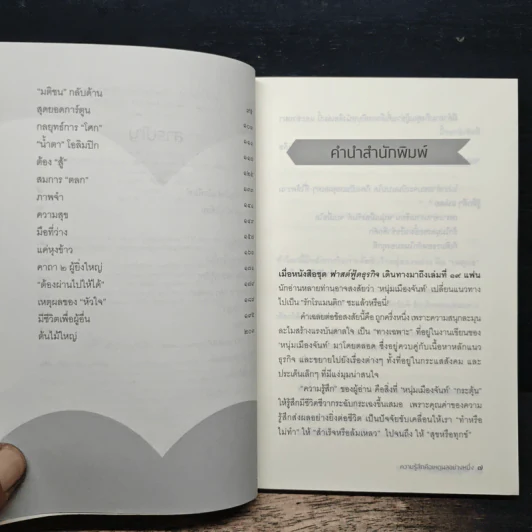 "มติชน" กลับด้าน
สุดยอดการ์ตูน
กลยุทธ์การ "โคก"
"น้ำตา" โอลิมปิก
ต้อง "สู้"
สมการ "ตลก"
ภาพจำ
ความสุข
มือที่ว่าง
แค่หุงข้าว
คาถา ๒ ผู้ยิ่งใหญ่
"ต้องผ่านไปให้ได้"
เหตุผลของ "หัวใจ"
มีชีวิตเพื่อผู้อื่น
ต้นไม้ใหญ่
คำนำสำนักพิมพ์
เมื่อหนังสือชุด ฟาสต์ฟู้ดธุรกิจ เดินทางมาถึงเล่มที่ ๑๙ แฟน
นักอ่านหลายท่านอาจสงสัยว่า 'หนุ่มเมืองจันท์' เปลี่ยนแนวทาง
ไปเป็น "รักโรแมนติก" ซะแล้วหรือนี่!
คำเฉลยต่อข้อสงสัยนี้คือ ถูกครึ่งหนึ่ง เพราะความสนุกละมุน
ละไมสร้างแรงบันดาลใจ เป็น "ทางเฉพาะ" ที่อยู่ในงานเขียนของ
'หนุ่มเมืองจันท์' มาโดยตลอด ซึ่งอยู่ควบคู่กับเนื้อหาหลักแนว
ธุรกิจ และขยายไปยังเรื่องต่างๆ ทั้งที่อยู่ในกระแสสังคม และ
ประเด็นเล็กๆ ที่มีแง่มุมน่าสนใจ
"ความรู้สึก" ของผู้อ่าน คือสิ่งที่ 'หนุ่มเมืองจันท์' "กระตุ้น"
ให้รู้สึกมีชีวิตชีวากระฉับกระเฉงขึ้นเสมอ เพราะคุณค่าของความ
รู้สึกส่งผลอย่างยิ่งต่อชีวิต เป็นปัจจัยขับเคลื่อนให้เรา "ทำหรือ
ไม่ทำ" ให้ "สำเร็จหรือล้มเหลว" ไปจนถึง ให้ "สุขหรือทุกข์"
ความรู้สึกคือเหตุผลอย่างหนึ่ง ๗